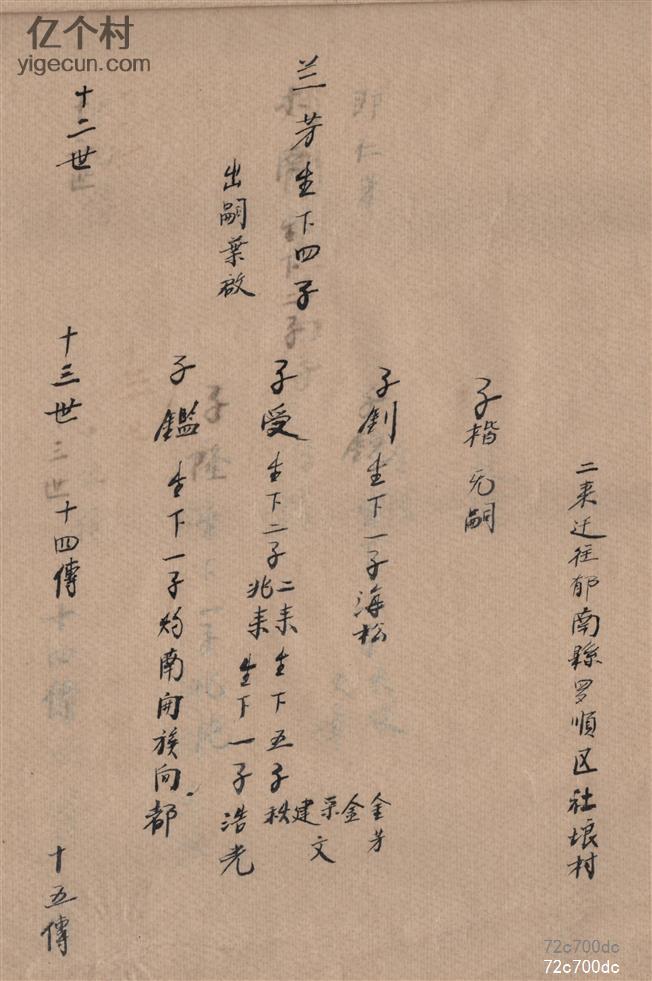 亿个村
yigecun.com
二来迁往郁南縣罗順区社埌村
子楷无嗣
子釗生下一子海松
金芳
兰芳生下四子
子受生下二子
二来生下五子
金
采
建文
秩
兆来生下一子浩光
出嗣葉啟
子鑑生下一子灼南向族问都
十二世
十三世
十四傳
十五傳
72c700dc
72c700dc